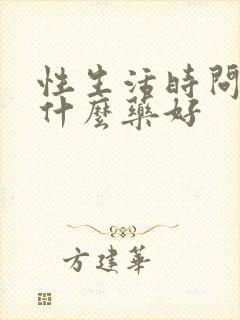 性生活時間
什麼藥好
方建華